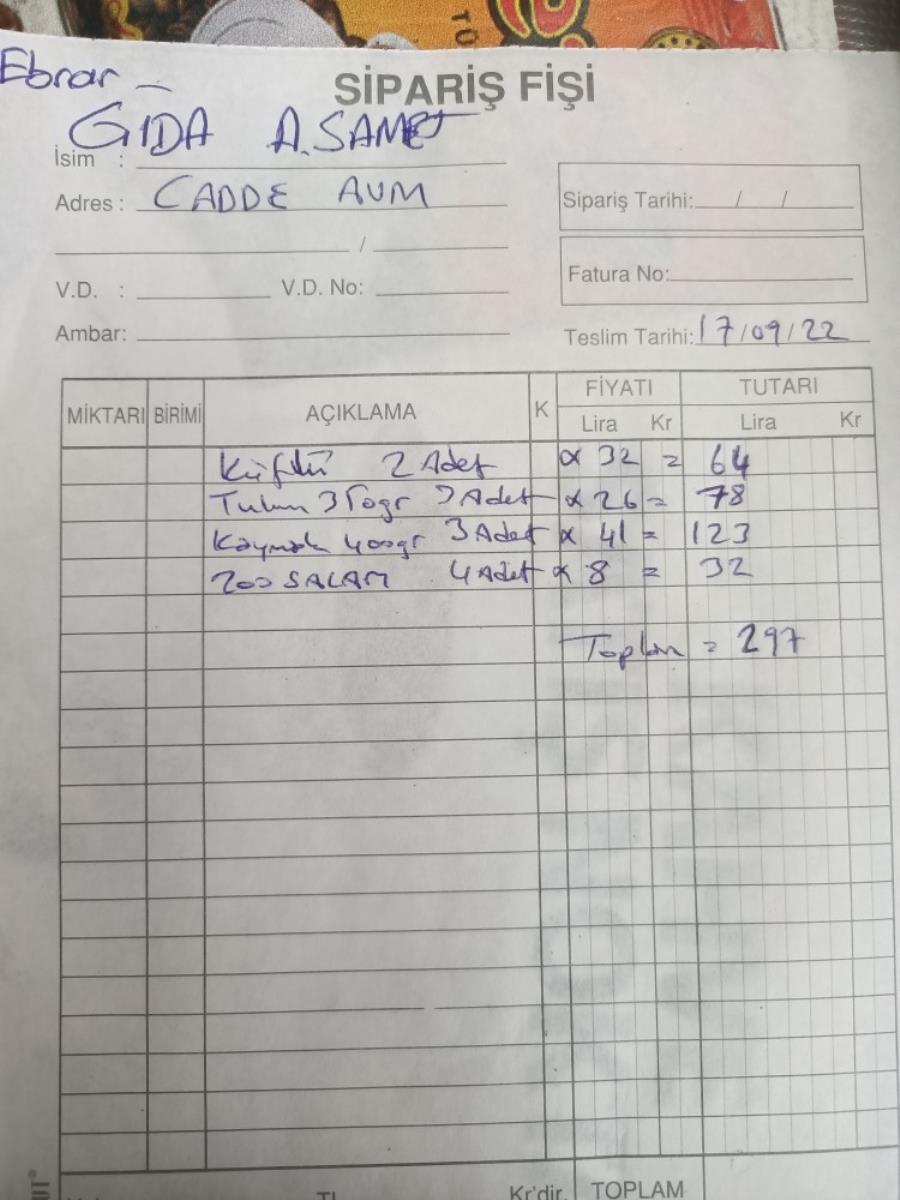 TÜ
Ebrar –
SİPARİŞ FİŞİ
GIDA A.SAMET
İsim :
Adres : CADDE AVM
Sipariş Tarihi: / /
/
Fatura No:
V.D. : V.D. No:
Ambar:
Teslim Tarihi: 17/09/22
MİKTARI BİRİMİ AÇIKLAMA K FİYATI TUTARI
Lira Kr Lira Kr
Küflü 2 Adet x 32 = 64
Tulum 350gr 3 Adet x 26 = 78
Kaymak 400gr 3 Adet x 41 = 123
200 SALAM 4 Adet x 8 = 32
Toplam = 297
TL Kr'dir. TOPLAM